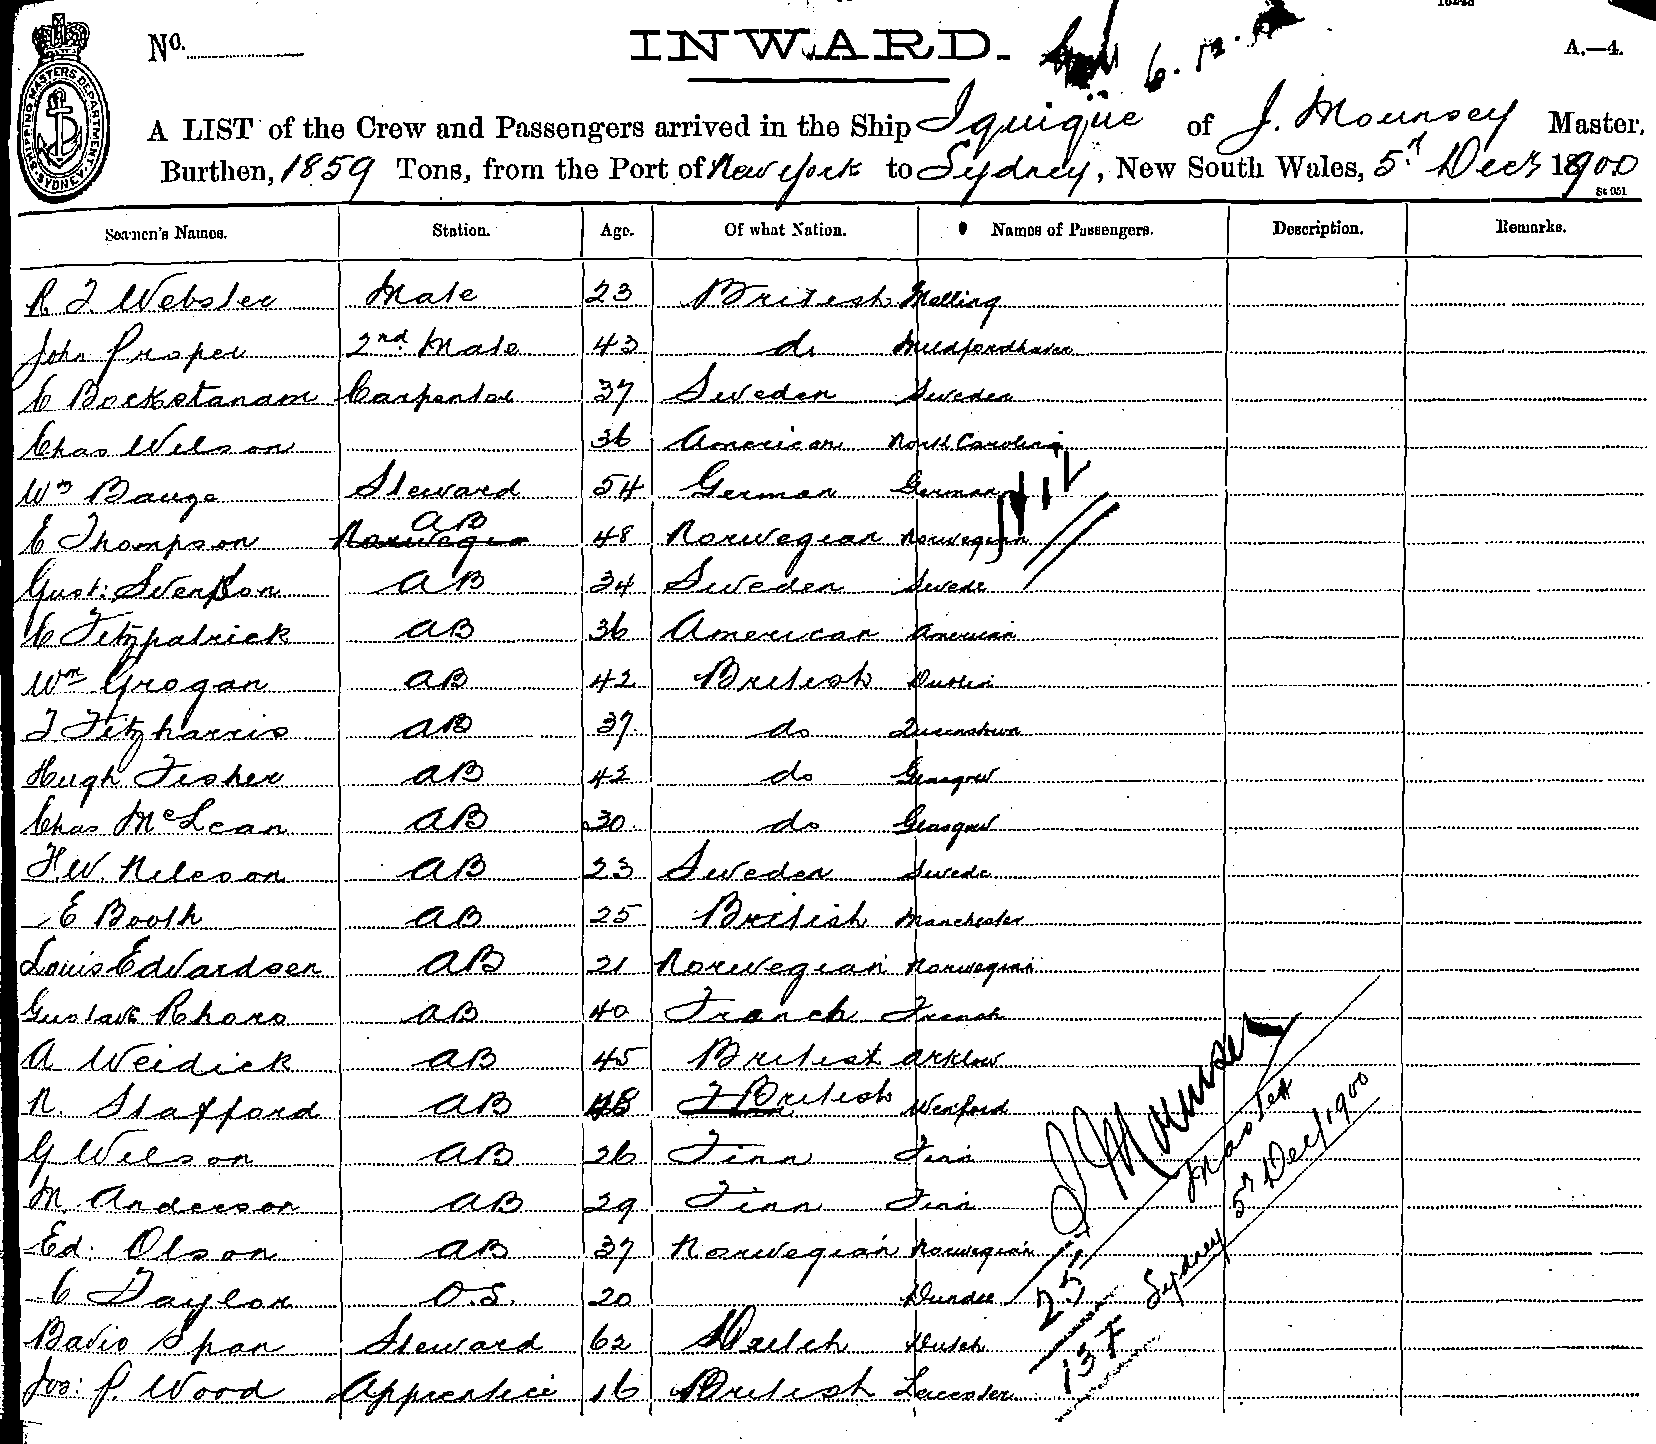 No.
INWARD.
6.12.
A.—4.
SHIPPING MASTERS DEPARTMENT SYDNEY
A LIST of the Crew and Passengers arrived in the Ship Iquique of J. Mounsey Master,
Burthen, 1859 Tons, from the Port of New York to Sydney, New South Wales, 5th Decr 1900
St 051
Seamen's Names. Station. Age. Of what Nation. Names of Passengers. Description. Remarks.
R J Webster Mate 23 British Melling
John Prosper 2nd Mate 43 do Mildfordhaven
C Bockstanam Carpenter 37 Sweden Sweden
Chas Wilson 36 American North Carolina
Wm Bauge Steward 54 German German
E Thompson Norwegian AB 48 Norwegian Norwegian
Gust: Svenson AB 34 Sweden Swede
C Fitzpatrick AB 36 American American
Wm Grogan AB 42 British Dublin
T Fitzharris AB 37 do Queenstown
Hugh Fisher AB 42 do Glasgow
Chas McLean AB 30 do Glasgow
F.W. Nilsson AB 23 Sweden Swede
E Booth AB 25 British Manchester
Louis Edvardsen AB 21 Norwegian Norwegian
Gustave Rhoro AB 40 French French
A Weidick AB 45 British Arklow
N. Stafford AB 48 British Wexford
G Wilson AB 26 Finn Finn
M Anderson AB 29 Finn Finn
Ed. Olson AB 37 Norwegian Norwegian
C Taylor O.S. 20 Dundee
Bavio Span Steward 62 Dutch Dutch
Jos: P. Wood Apprentice 16 British Leicester
J Mounsey
Master
Sydney 5th Dec/1900
25
137